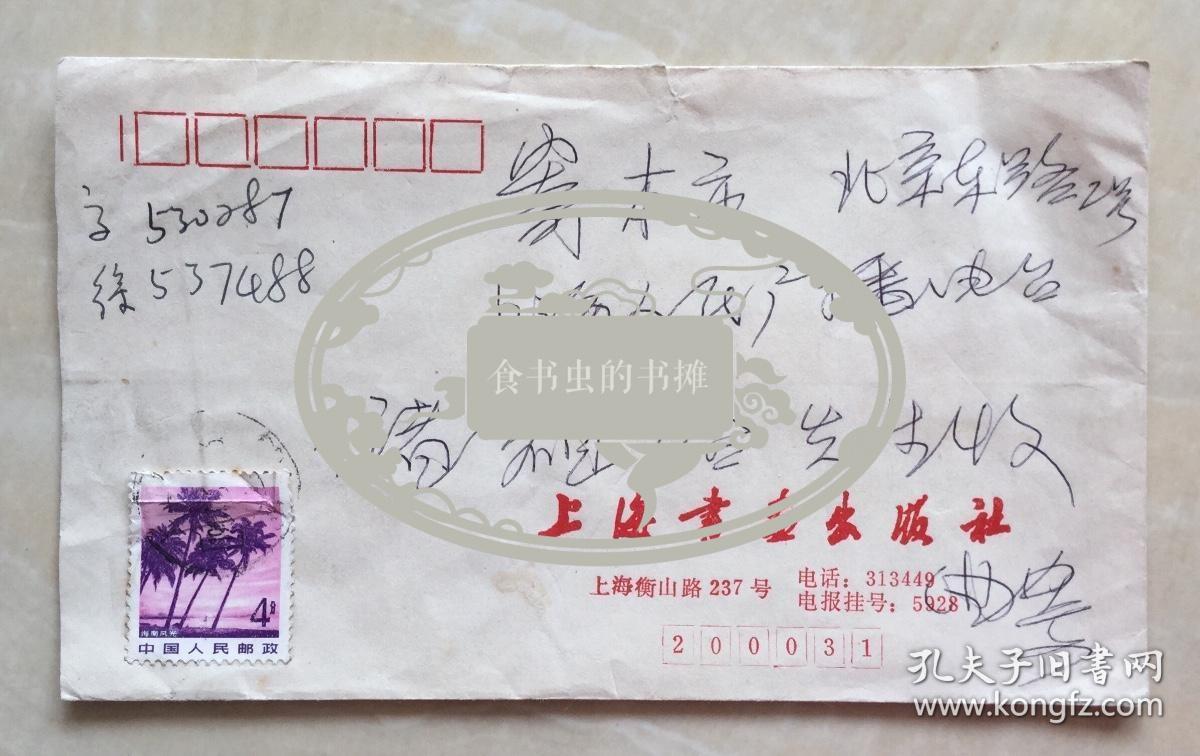 寄本市 北京东路2号
字 530287
徐 537488
人民广播电台
先生收
食书虫的书摊
上海书画出版社
上海衡山路 237 号
电话：313449
电报挂号：5928
200031
4分
海南风光
中国人民邮政
孔夫子旧书网
www.kongfz.com